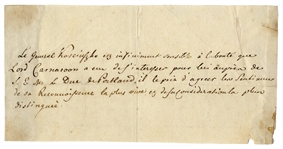 Le General Kosciuszko est infiniment sensible à la bonté que
Lord Carnarvon a eue de s'interesser pour lui auprès de
S. E. M. le Duc de Portland, il le prie d'agréer les Sentimens
de sa Reconnoissance la plus vive et de sa Consideration la plus
distinguée.